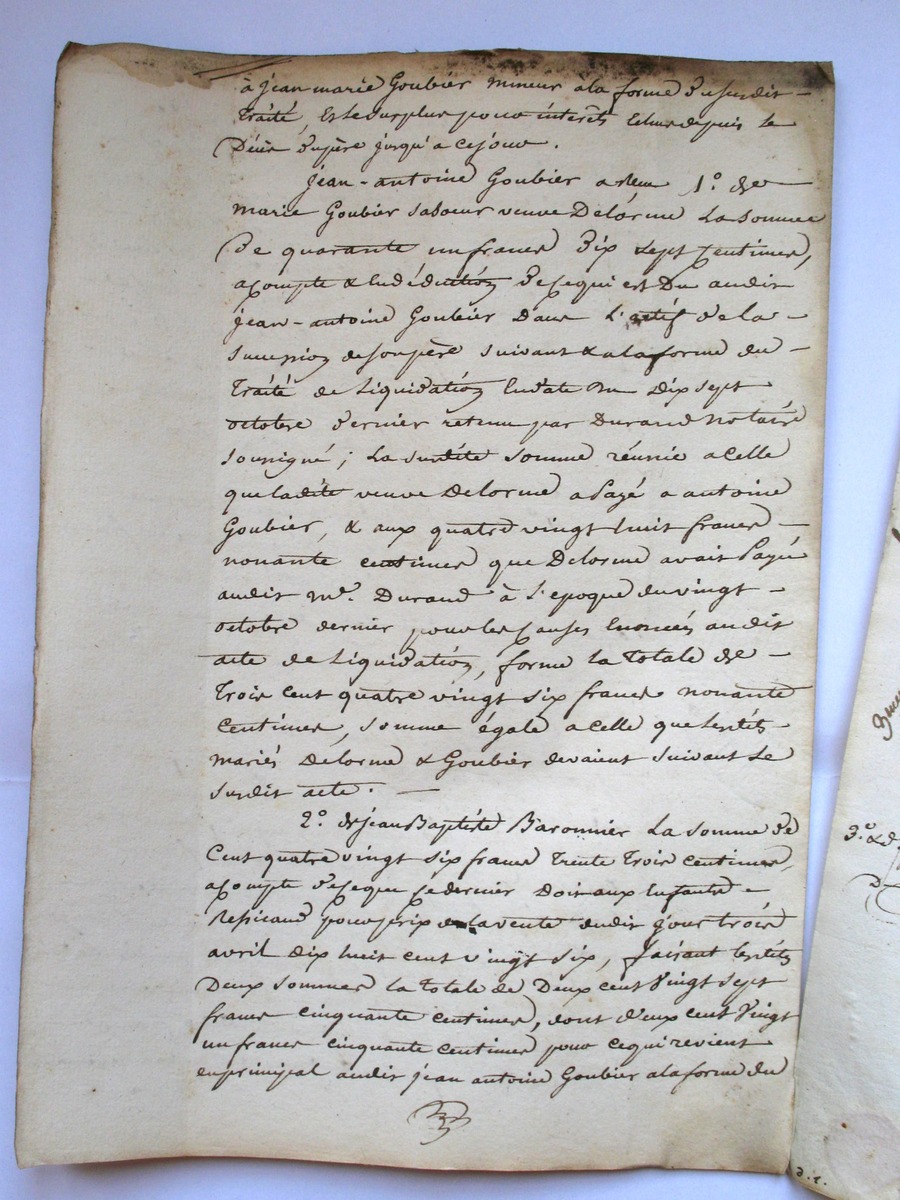 à jean marie Goubier mineur à la forme du susdit
traité, et le surplus pour intérêts échus depuis le
Décès du père jusqu'a ce jour.
jean-antoine Goubier a reçu 1.° de
marie Goubier sa soeur veuve Delorme la somme
de quarante un francs dix sept centimes,
acompte & en déduction de ce qui est Du audit
jean-antoine Goubier dans l'actif de la
succession de son père suivant & a la forme du
traité de liquidation en date Du dix sept
octobre dernier retenu par Durand notaire
soussigné; la susdite somme réunie a celle
que ladite veuve Delorme a Payé a antoine
Goubier, & aux quatre vingt huit francs
nonante centimes que Delorme avait Payé
audit me. Durand à l'epoque du vingt
octobre dernier pour les causes énoncées audit
acte de liquidation, forme la totale de
trois cent quatre vingt six francs nonante
centimes, somme égale a celle que lesdits
mariés Delorme & Goubier devaient suivant le
susdit acte.
2.° de jean Baptiste Baronnier la somme de
Cent quatre vingt six francs trente trois centimes,
acompte de ce que ce dernier doit aux enfants
pour prix de la vente dudit jour trois
avril dix huit cent vingt six, faisant lesdits
Deux sommes la totale de Deux cent Vingt sept
francs cinquante centimes, dont deux cent Vingt
un francs cinquante centimes pour ce qui revient
en principal audit jean antoine Goubier a la forme du
3.°